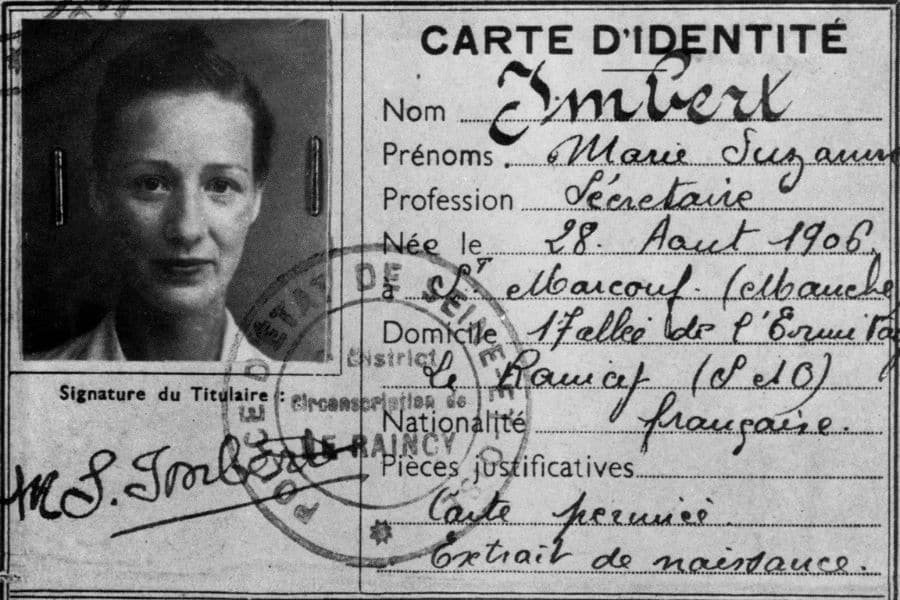 CARTE D'IDENTITÉ
Nom Imbert
Prénoms. Marie Suzanne
Profession Sécretaire
Née le 28. Aout 1906.
à St Marcouf. (Manche
Domicile 17 allée de l'Ermitag
Le Raincy (S et O)
Nationalité française.
Pièces justificatives
Carte
Extrait de naissance.
Signature du Titulaire :
M S. Imbert
POLICE D'ETAT DE SEINE ET OISE
District
Circonscription de
LE RAINCY